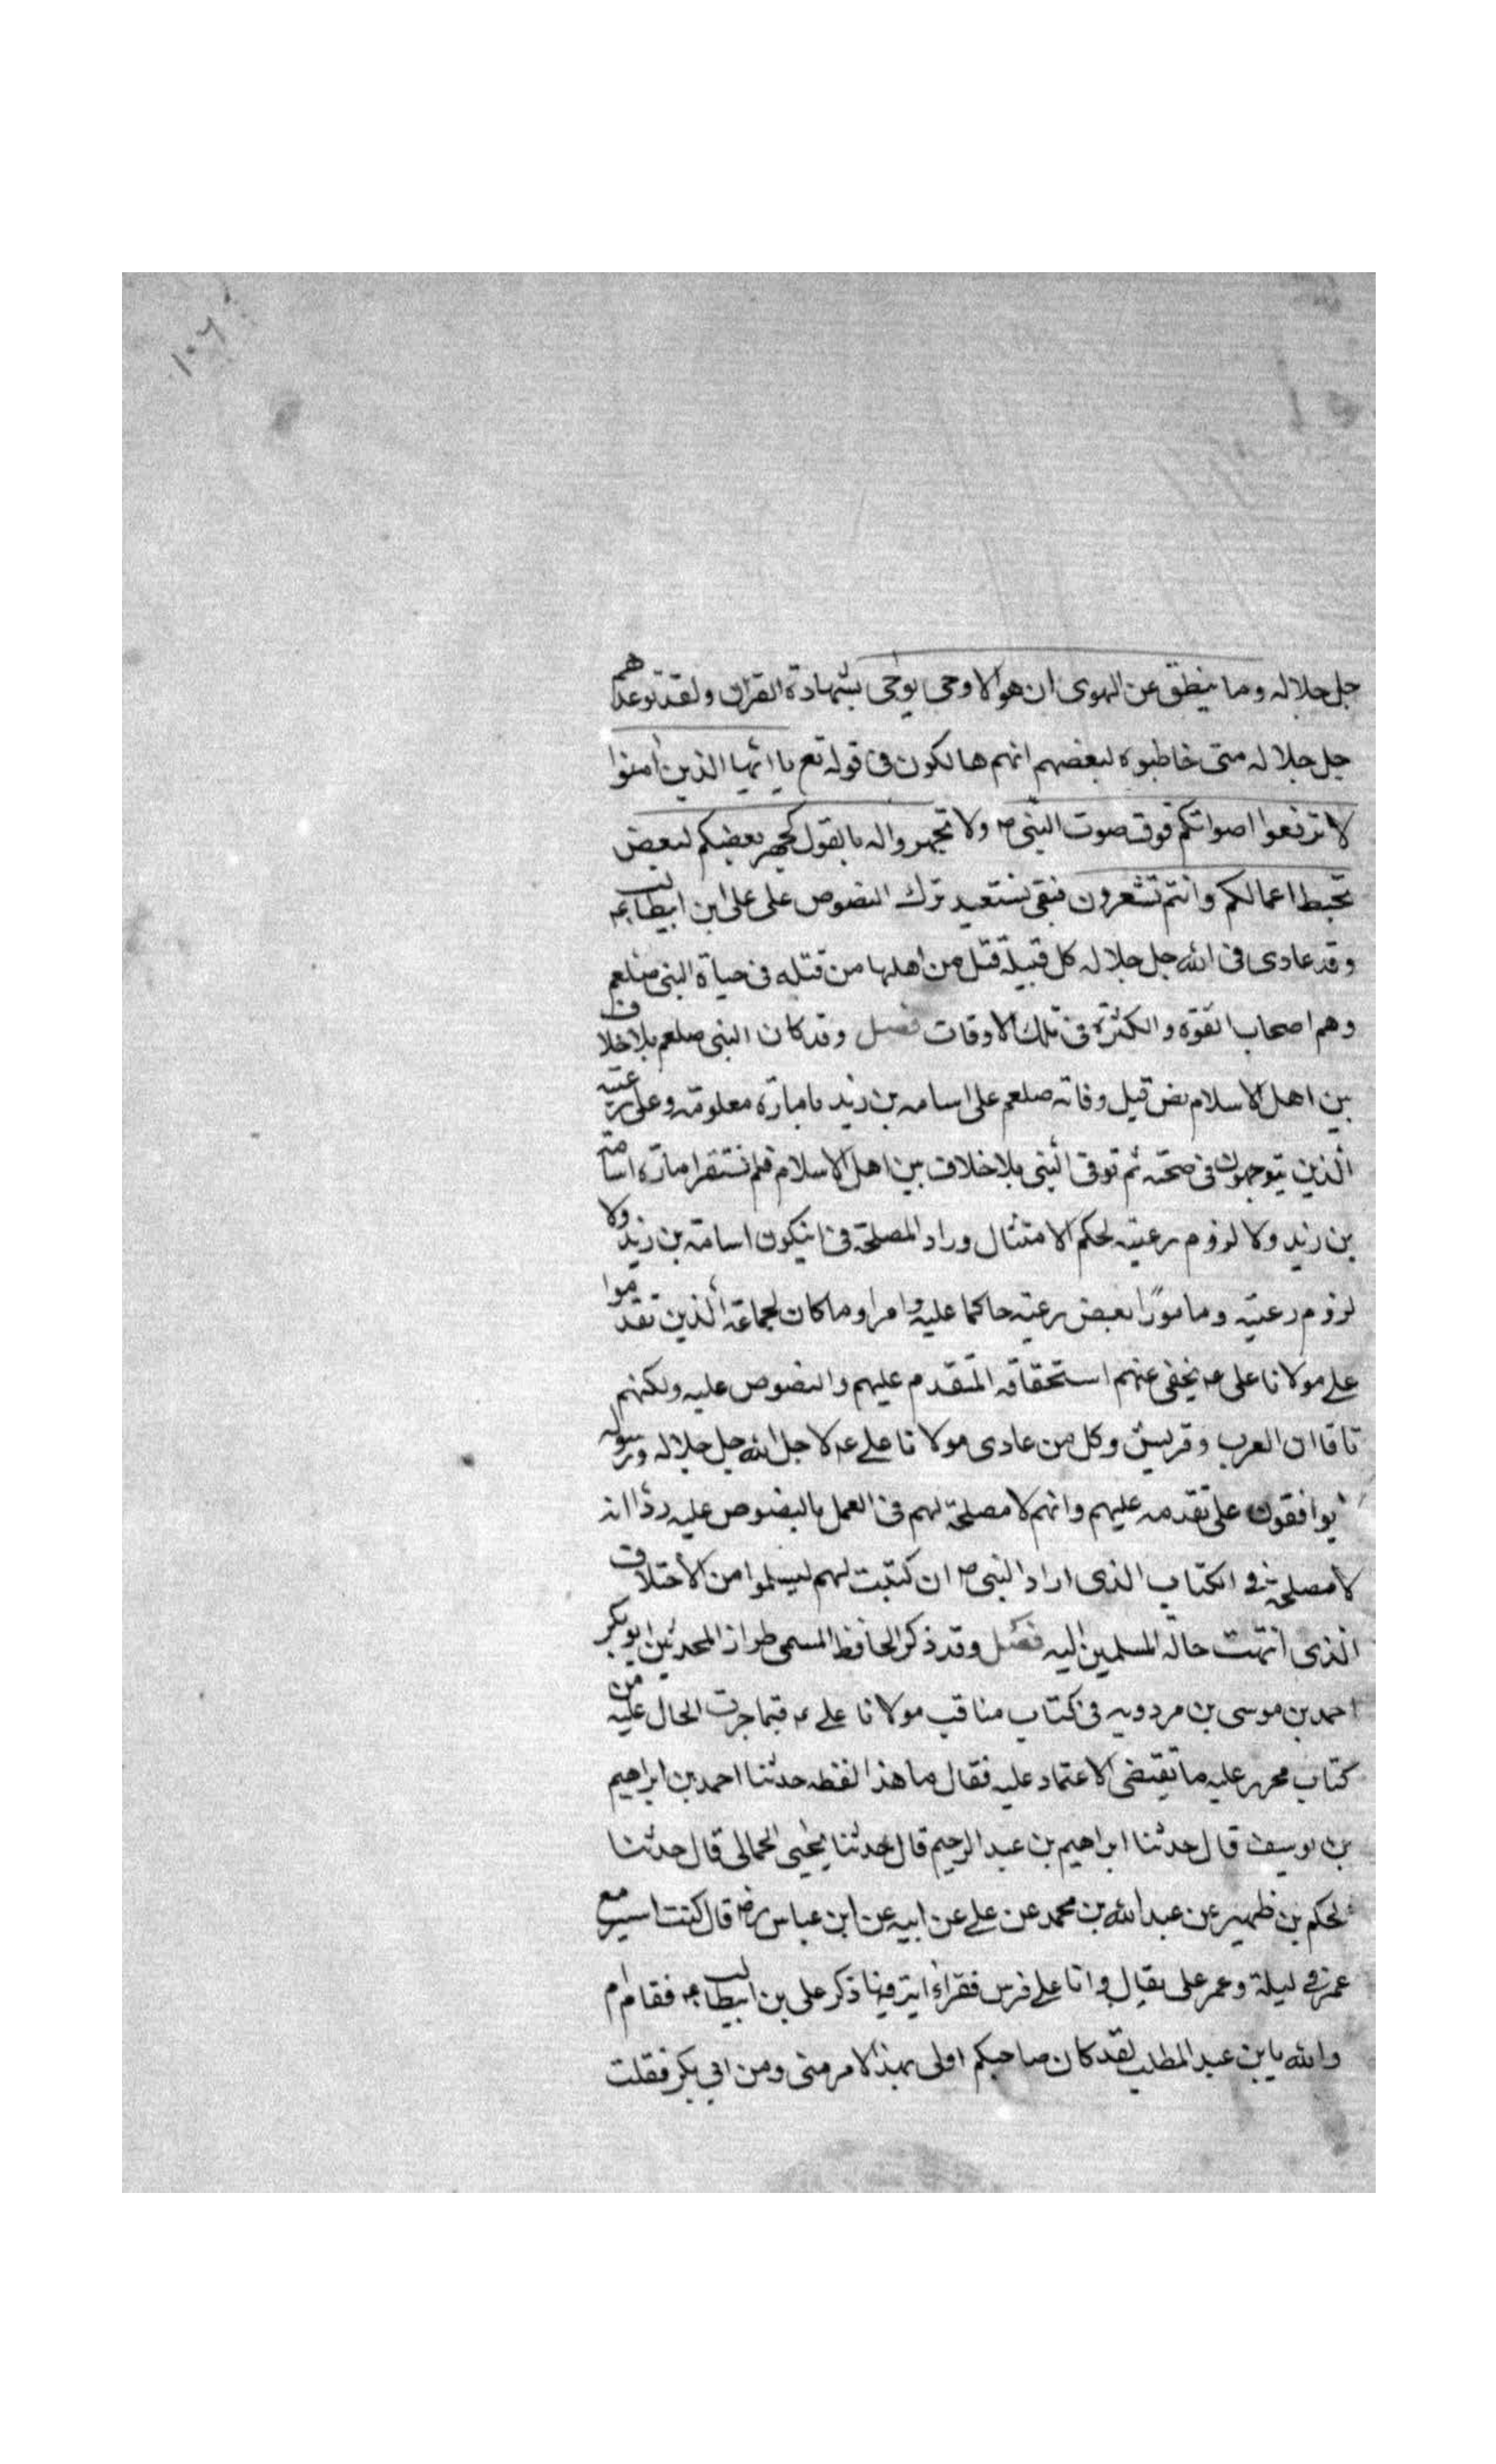 ١٠٦
جل جلاله وما ينطق عن الهوى ان هو الا وحى يوحى بشهادة القران ولقد توعدهم
جل جلاله متى خاطبوه لبعضهم انهم هالكون فى قوله تع يا ايها الذين امنوا
لا ترفعوا اصواتكم فوق صوت النبى ص ولا تجهروا له بالقول كجهر بعضكم لبعض
تحبط اعمالكم وانتم تشعرون فبقى نستعيد ترك النصوص على على ابن ابيطالب عم
وقد عادى فى الله جل جلاله كل قبيلة قتل من اهلها من قتله فى حياة النبى صلعم
وهم اصحاب القوة والكثرة فى تلك الاوقات فصل وقد كان النبى صلعم بلا خلاف
بين اهل الاسلام نص قبل وفاته صلعم على اسامه بن زيد بامارة معلومة وعلى رعيته
الذين يتوجهون فى صحبته ثم توفى النبى بلا خلاف بين اهل الاسلام فلم تستقر امارة اسامة
بن زيد ولا لزوم رعيته لحكم الامتثال وراد المصلحة فى ان يكون اسامة بن زيد ولا
لزوم رعيته ومامورا بعض رعيته حاكما عليه وامرا وما كان لجماعة الذين تقدموا
على مولانا على عم يخفى عنهم استحقاقه المتقدم عليهم والنصوص عليه ولكنهم
العرب وقريش وكل من عادى مولانا على عم لاجل الله جل جلاله ورسوله
يوافقون على تقدمه عليهم وانهم لا مصلحة لهم فى العمل بالنصوص عليه انه
لا مصلحة فى الكتاب الذى اراد النبى ص ان كتبت لهم ليسلموا من الاختلاف
الذى انتهت حالة المسلمين اليه فصل وقد ذكر الحافظ المسمى طراز المحدثين ابو بكر
احمد بن موسى بن مردويه فى كتاب مناقب مولانا على عم فيما جرت الحال عليه من
كتاب محرر عليه ما تقتضى الاعتماد عليه فقال ما هذا لفظه حدثنا احمد بن ابراهيم
بن يوسف قال حدثنا ابراهيم بن عبد الرحيم قال حدثنا يحيى الحمالى قال حدثنا
الحكم بن ظهير عن عبد الله بن محمد عن على عن ابيه عن ابن عباس رض قال كنت اسير مع
عمر فى ليلة وعمر على بقيال وانا على فرس فقرا اية فيها ذكر على بن ابيطالب عم فقام ام
والله يا بن عبد المطلب لقد كان صاحبكم اولى بهذا الامر منى ومن ابى بكر فقلت